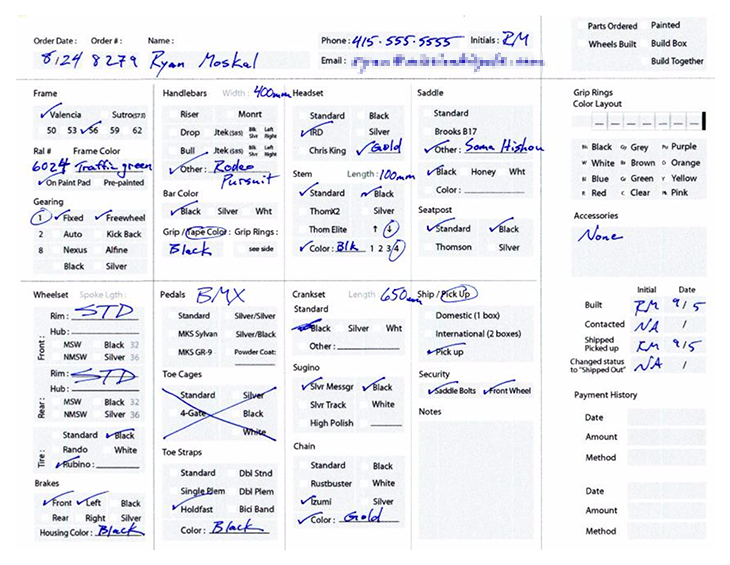 Order Date : Order # : Name :
8124 8279 Ryan Moskal
Phone : 415.555.5555 Initials : RM
Email :
Parts Ordered Painted
Wheels Built Build Box
Build Together
Frame
Valencia Sutro(57.5)
50 53 56 59 62
Ral # Frame Color
6024 Traffic green
On Paint Pad Pre-painted
Gearing
1 Fixed Freewheel
2 Auto Kick Back
8 Nexus Alfine
Black Silver
Handlebars Width : 400mm
Riser Monrt
Drop Jtek (SRS) Blk Slvr Left Right
Bull Jtek (SRS) Blk Slvr Left Right
Other : Rodeo
Pursuit
Bar Color
Black Silver Wht
Grip / Tape Color : Grip Rings :
Black see side
Headset
Standard Black
IRD Silver
Chris King Gold
Stem Length : 100mm
Standard Black
ThomX2 Silver
Thom Elite ↑ ↓
Color : Blk 1 2 3 4
Saddle
Standard
Brooks B17
Other : Soma Hishou
Black Honey Wht
Color :
Seatpost
Standard Black
Thomson Silver
Grip Rings
Color Layout
Bk Black Gy Grey Pu Purple
W White Br Brown O Orange
Bl Blue G Green Y Yellow
R Red C Clear Pk Pink
Accessories
None
Wheelset Spoke Lgth :
Front :
Rim : STD
Hub :
MSW Black 32
NMSW Silver 36
Rear :
Rim : STD
Hub :
MSW Black 32
NMSW Silver 36
Tire :
Standard Black
Rando White
Rubino :
Brakes
Front Left Black
Rear Right Silver
Housing Color : Black
Pedals BMX
Standard Silver/Silver
MKS Sylvan Silver/Black
MKS GR-9 Powder Coat:
Toe Cages
Standard Silver
4-Gate Black
White
Toe Straps
Standard Dbl Stnd
Single Plem Dbl Plem
Holdfast Bici Band
Color : Black
Crankset Length 650mm
Standard
Black Silver Wht
Other :
Sugino
Slvr Messgr Black
Slvr Track White
High Polish
Chain
Standard Black
Rustbuster White
Izumi Silver
Color : Gold
Ship / Pick Up
Domestic (1 box)
International (2 boxes)
Pick up
Security
Saddle Bolts Front Wheel
Notes
Initial Date
Built RM 9/5
Contacted NA /
Shipped
Picked up RM 9/5
Changed status
to "Shipped Out" NA /
Payment History
Date
Amount
Method
Date
Amount
Method